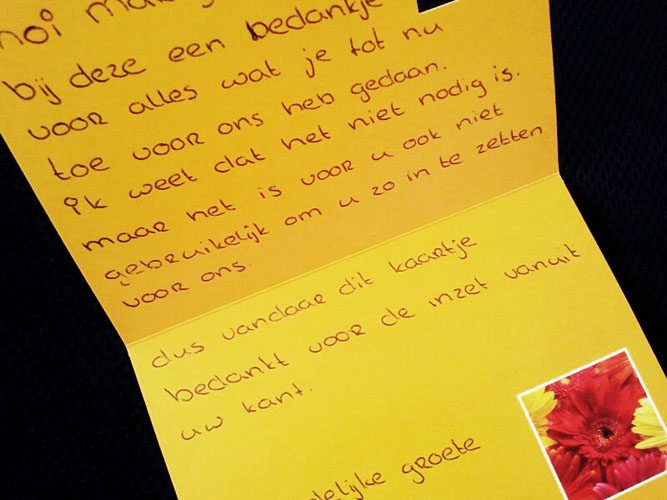 bij deze een bedankje
voor alles wat je tot nu
toe voor ons heb gedaan.
ik weet dat het niet nodig is.
maar het is voor u ook niet
gebruikelijk om u zo in te zetten
voor ons.
dus vandaar dit kaartje
bedankt voor de inzet vanuit
uw kant.
groete